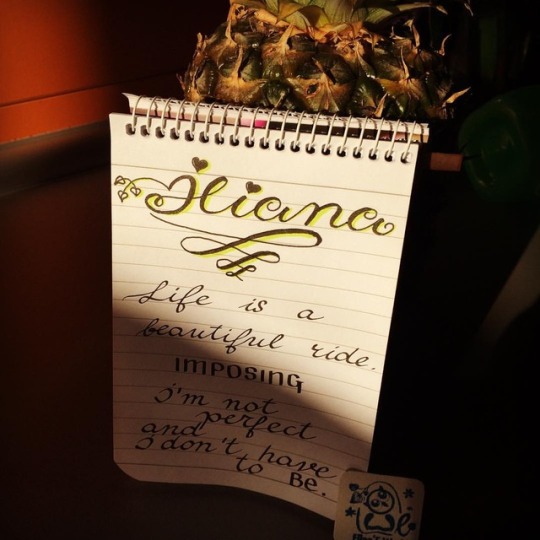 iliana
Life is a
beautiful ride.
IMPOSING
i'm not
perfect
and
I don't have
to Be.